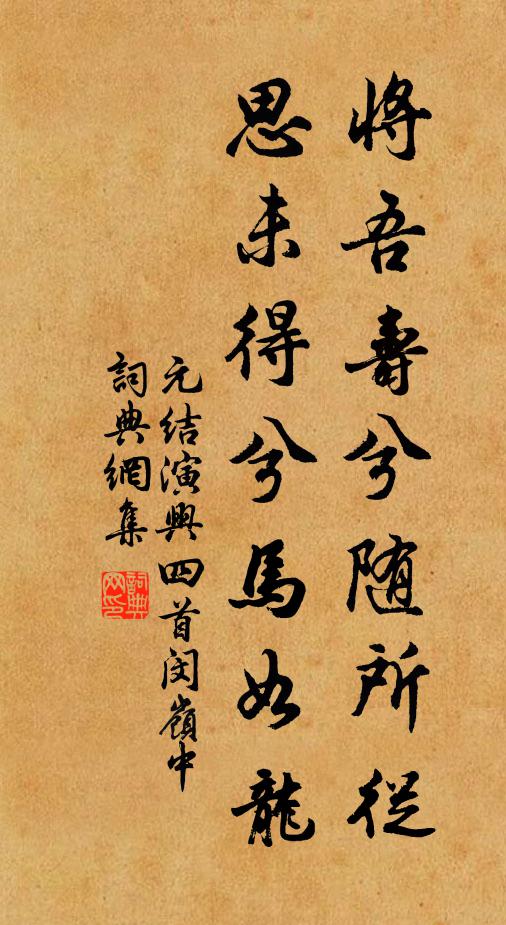 將吾壽兮随所從
思未得兮馬如龍
元结演興四首閔嶺中
詞典網集
詞典网印